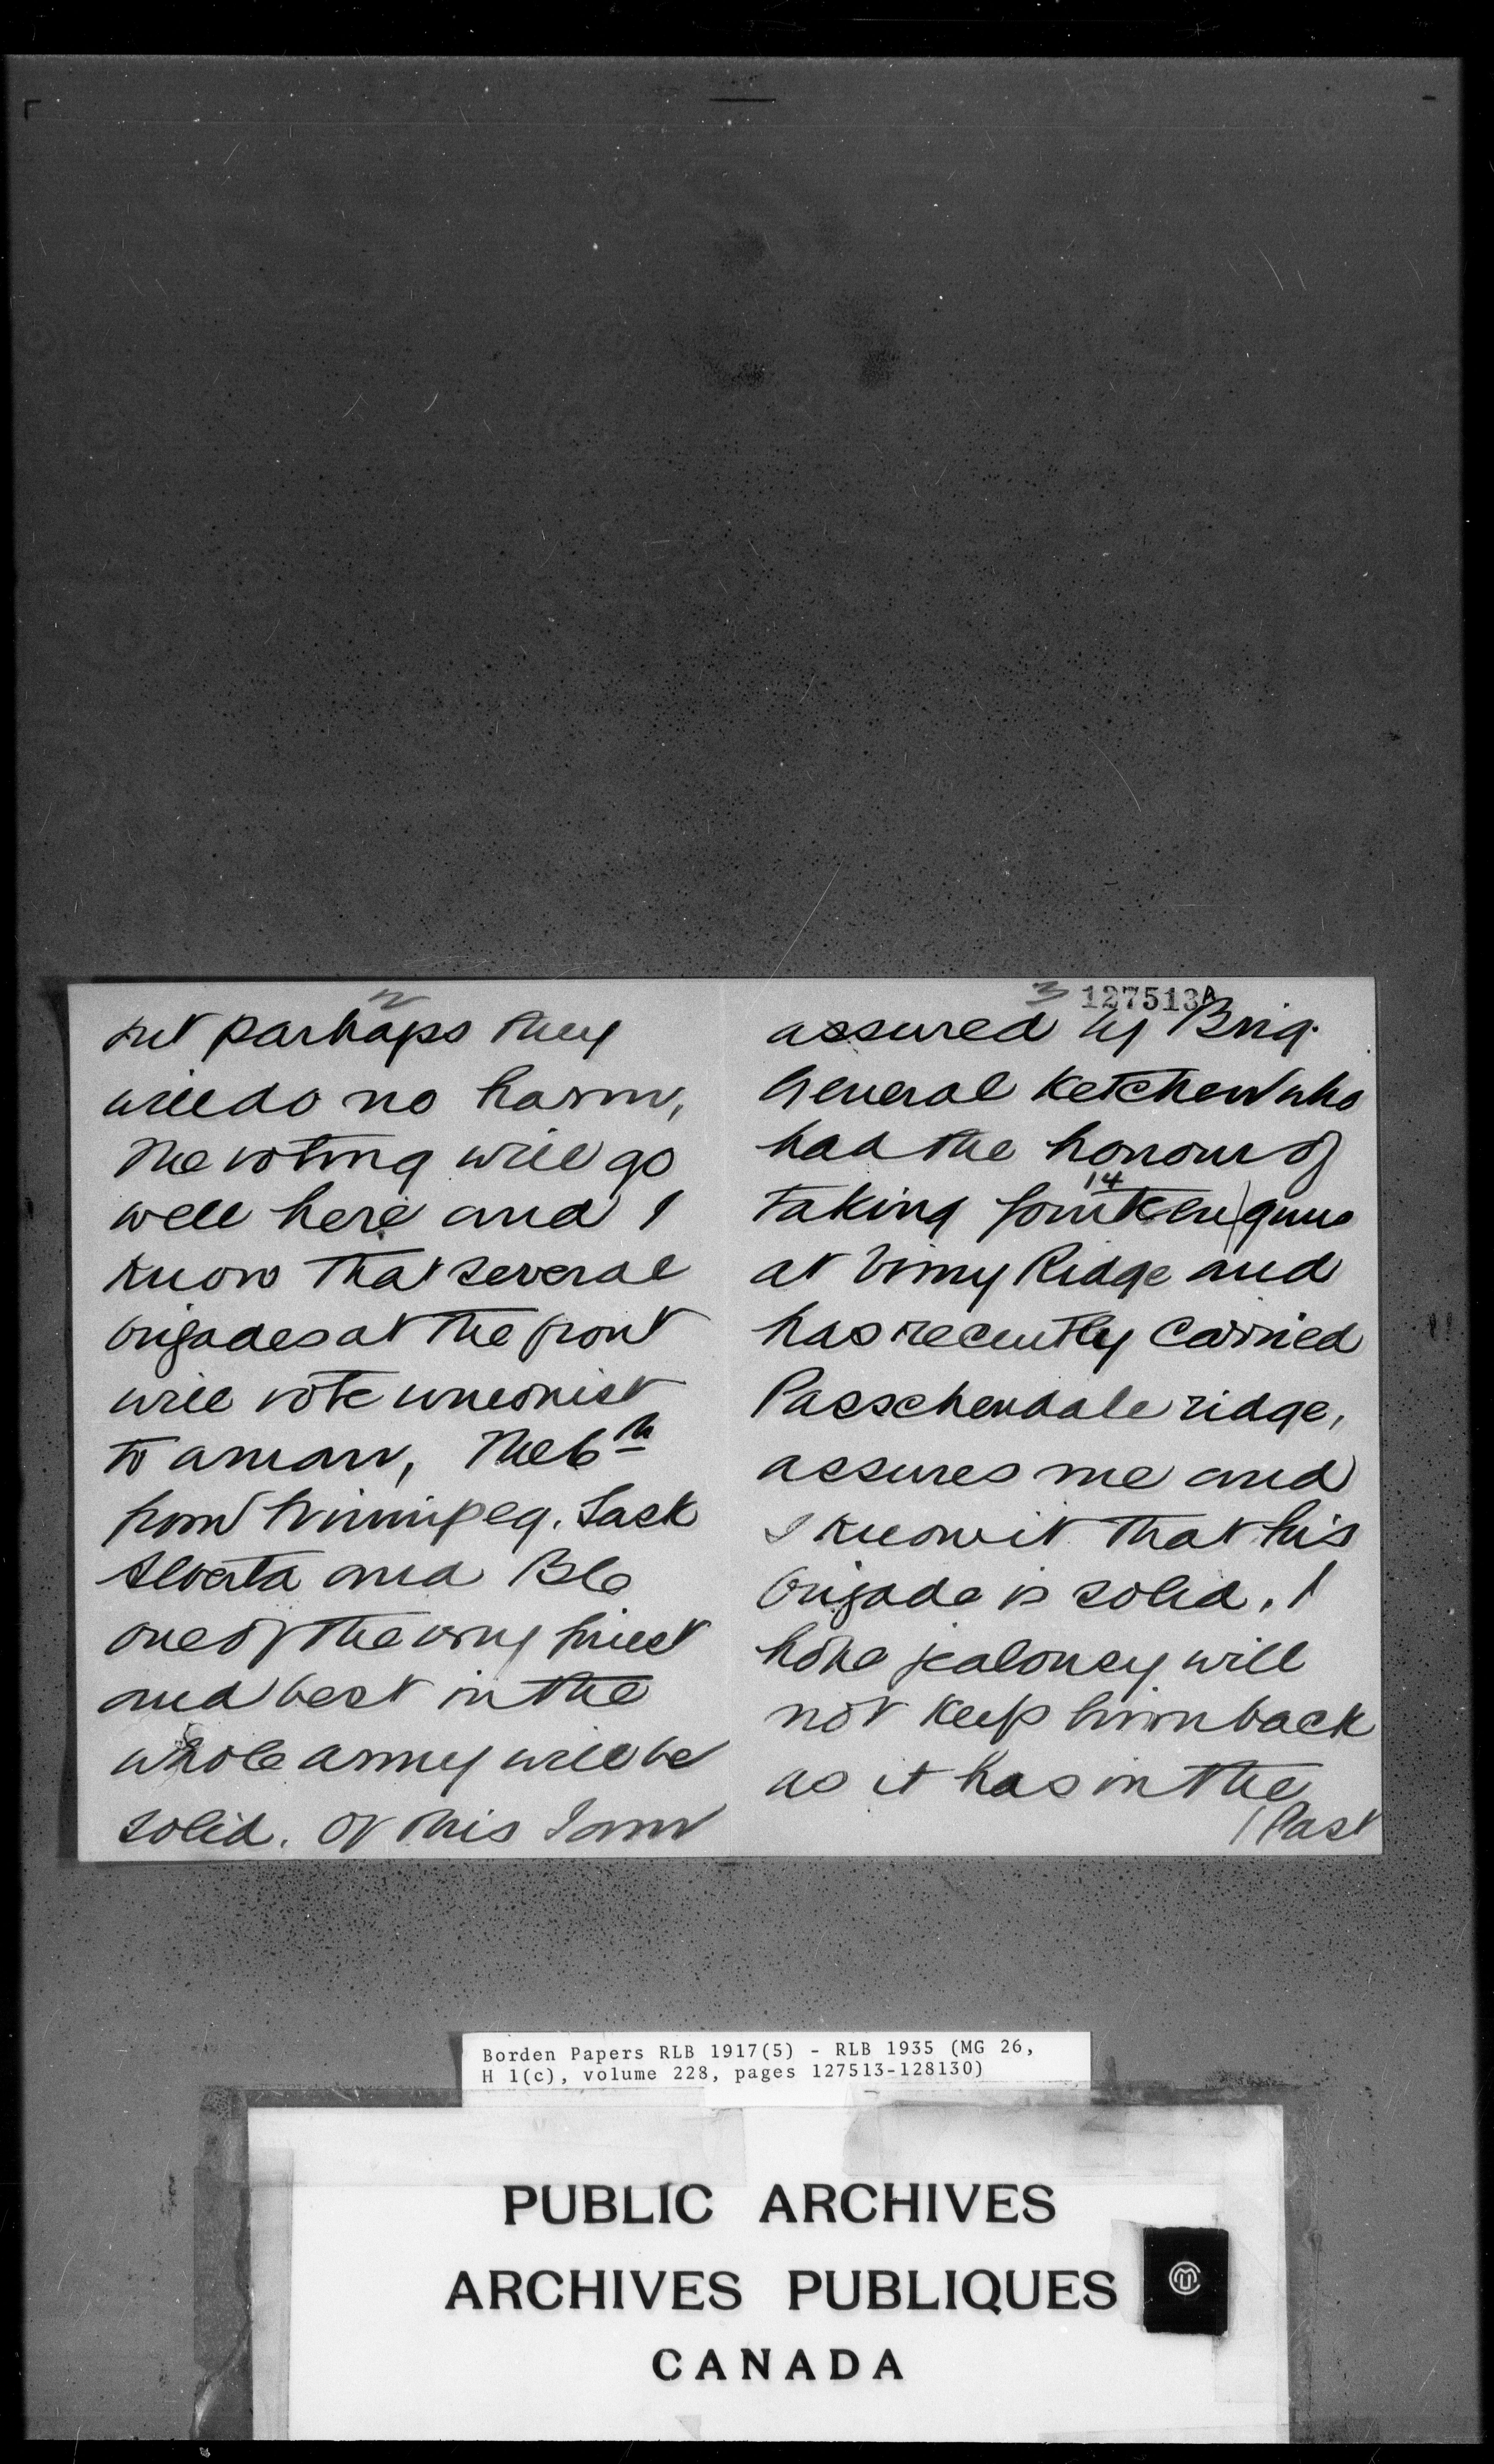 2
but parhaps they
will do no harm,
The voting will go
well here and I
know that several
brigades at the front
will vote unionist
to a man, The 6th
from Winnipeg. Sask
Alberta and BC
one of the very finest
and best in the
whole army will be
solid. Of this I am
3 127513A
assured by Brig.
General Ketchen who
had the honour of
14
taking fourteen guns
at Vimy Ridge and
has recently carried
Passchendale ridge,
assures me and
I know it that his
brigade is solid. I
hope jealousy will
not keep him back
as it has in the
/ Past
Borden Papers RLB 1917(5) - RLB 1935 (MG 26,
H 1(c), volume 228, pages 127513-128130)
PUBLIC ARCHIVES
ARCHIVES PUBLIQUES
CANADA